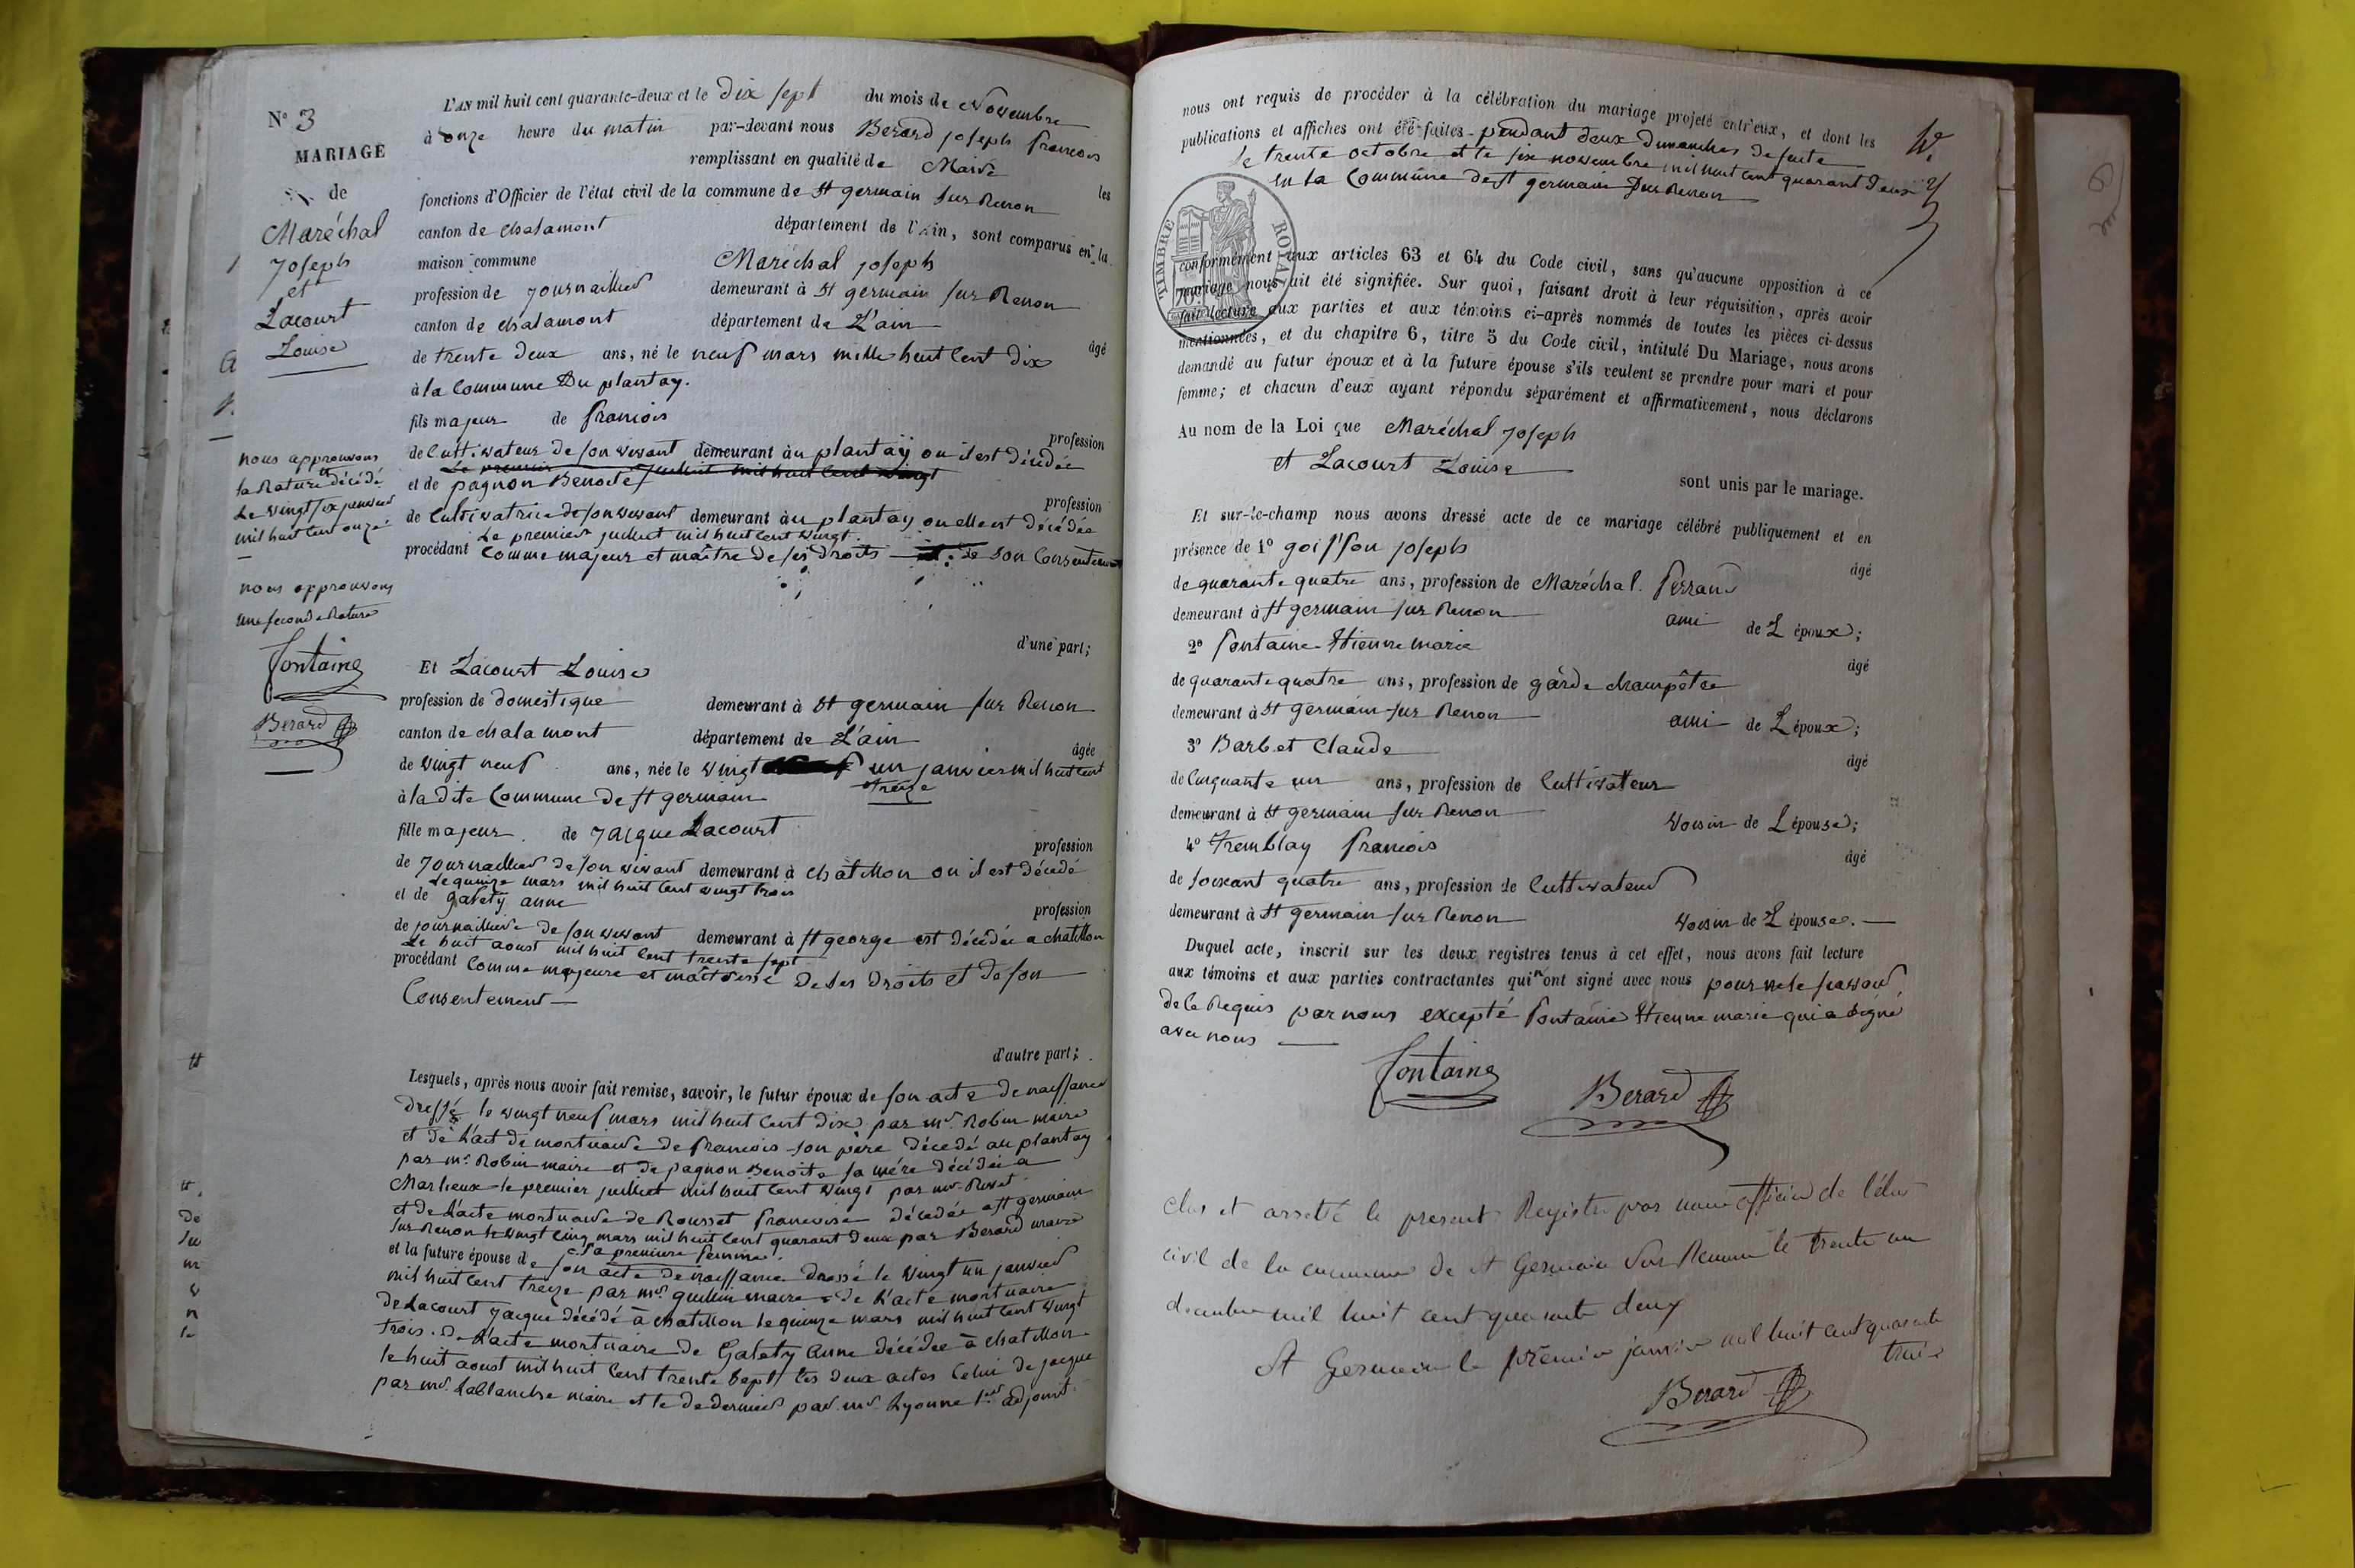 N° 3
MARIAGE
de
Maréchal
Joseph
et
Lacourt
Louise
nous approuvons
la Rature décédé
Le vingt six janvier
mil huit cent onze
nous approuvons
une seconde Rature
fontaine
Berard
L'AN mil huit cent quarante-deux et le dix sept du mois de Novembre
à onze heure du matin par-devant nous Berard joseph francois
remplissant en qualité de Maire les
fonctions d'Officier de l'état civil de la commune de St germain sur Renon
canton de chalamont département de l'Ain, sont comparus en la
maison commune Maréchal joseph
profession de journaillier demeurant à St germain sur Renon
canton de chalamont département de L'ain
âgé
de trente deux ans, né le neuf mars mille huit cent dix
à la Commune Du plantay.
fils majeur de francois
profession
de Cultivateur de son vivant demeurant àu plantaÿ ou il est décédée
Le premier juillet mil huit cent vingt
et de pagnon Benoite
profession
de Cultivatrice de son vivant demeurant àu plantay ou elle est décédée
Le premier juillet mil huit cent vingt.
procédant Comme majeur et maître de ses droits et de son Consentement
d'une part;
Et Lacourt Louise
profession de domestique demeurant à St germain sur Renon
canton de chalamont département de L'ain
âgée
de vingt neuf ans, née le vingt un janvier mil huit cent
treize
à la dite Commune de St germain
fille majeur de Jacque Lacourt
profession
de Journaillier de son vivant demeurant à chatillon ou il est décédé
Le quinze mars mil huit cent vingt trois
et de galety anne
profession
de journaillière de son vivant demeurant à St george est décédée a chatillon
Le huit aoust mil huit cent trente sept
procédant Comme majeure et maîtresse de ses droits et de son
Consentement
d'autre part;
Lesquels, après nous avoir fait remise, savoir, le futur époux de son acte de naissance
dressé le vingt neuf mars mil huit cent dix par mr. Robin maire
et de l'act de mortuaire de francois son père décedé au plantay
par mr. Robin maire et de pagnon Benoite sa mère décédée a
Marlieux le premier juillet mil huit cent vingt par mr
et de L'acte mortuaire de Rousset francoise décédée a St germain
sur Renon le vingt cinq mars mil huit cent quarant deux par Berard maire
sa premiere femme.
et la future épouse de son acte de naissance dressé le vingt un janvier
mil huit cent treize par mr guillin maire de L'acte mortuaire
de Lacourt jacque décédé à chatillon le quinze mars mil huit cent vingt
trois. de L'acte mortuaire de Galety Anne décédée à chatillon
le huit aoust mil huit cent trente sept les deux actes Celui de jacque
par mr. Lablanche maire et le de dernier par mr. Lyonne 1er adjoint
nous ont requis de procéder à la célébration du mariage projeté entr'eux, et dont les
publications et affiches ont été faites pendant deux dimanches de suite
Le trente octobre et le six novembre mil huit cent quarant deux
en la Commune de St germain sur Renon
TIMBRE ROYAL
conformément aux articles 63 et 64 du Code civil, sans qu'aucune opposition à ce
mariage nous ait été signifiée. Sur quoi, faisant droit à leur réquisition, après avoir
fait lecture aux parties et aux témoins ci-après nommés de toutes les pièces ci-dessus
mentionnées, et du chapitre 6, titre 5 du Code civil, intitulé Du Mariage, nous avons
demandé au futur époux et à la future épouse s'ils veulent se prendre pour mari et pour
femme; et chacun d'eux ayant répondu séparément et affirmativement, nous déclarons
Au nom de la Loi que Maréchal joseph
et Lacourt Louise
sont unis par le mariage.
Et sur-le-champ nous avons dressé acte de ce mariage célébré publiquement et en
présence de 1° goisson joseph
âgé
de quarante quatre ans, profession de Maréchal. ferrand
demeurant à St germain sur Renon ami de L époux;
2° fontaine Etienne marie
âgé
de quarante quatre ans, profession de gàrde champêtre
demeurant à St germain sur Renon ami de L époux;
3° Barbet Claude
âgé
de Cinquante un ans, profession de Cultivateur
demeurant à St germain sur Renon voisin de L épouse;
4° Tremblay francois
âgé
de soixant quatre ans, profession de Cultivateur
demeurant à St germain sur Renon voisin de L épouse.
Duquel acte, inscrit sur les deux registres tenus à cet effet, nous avons fait lecture
aux témoins et aux parties contractantes qui n'ont signé avec nous pour ne le savoir
de ce Requis par nous excepté fontaine Etienne marie qui a signé
avec nous
fontaine Berard
Clos et arretté le present Registre par nous officier de l'état
civil de la commune de St Germain Sur Renon le trente un
decembre mil huit cent quarante deux
St Germain le premier janvier mil huit cent quarante
trois
Berard